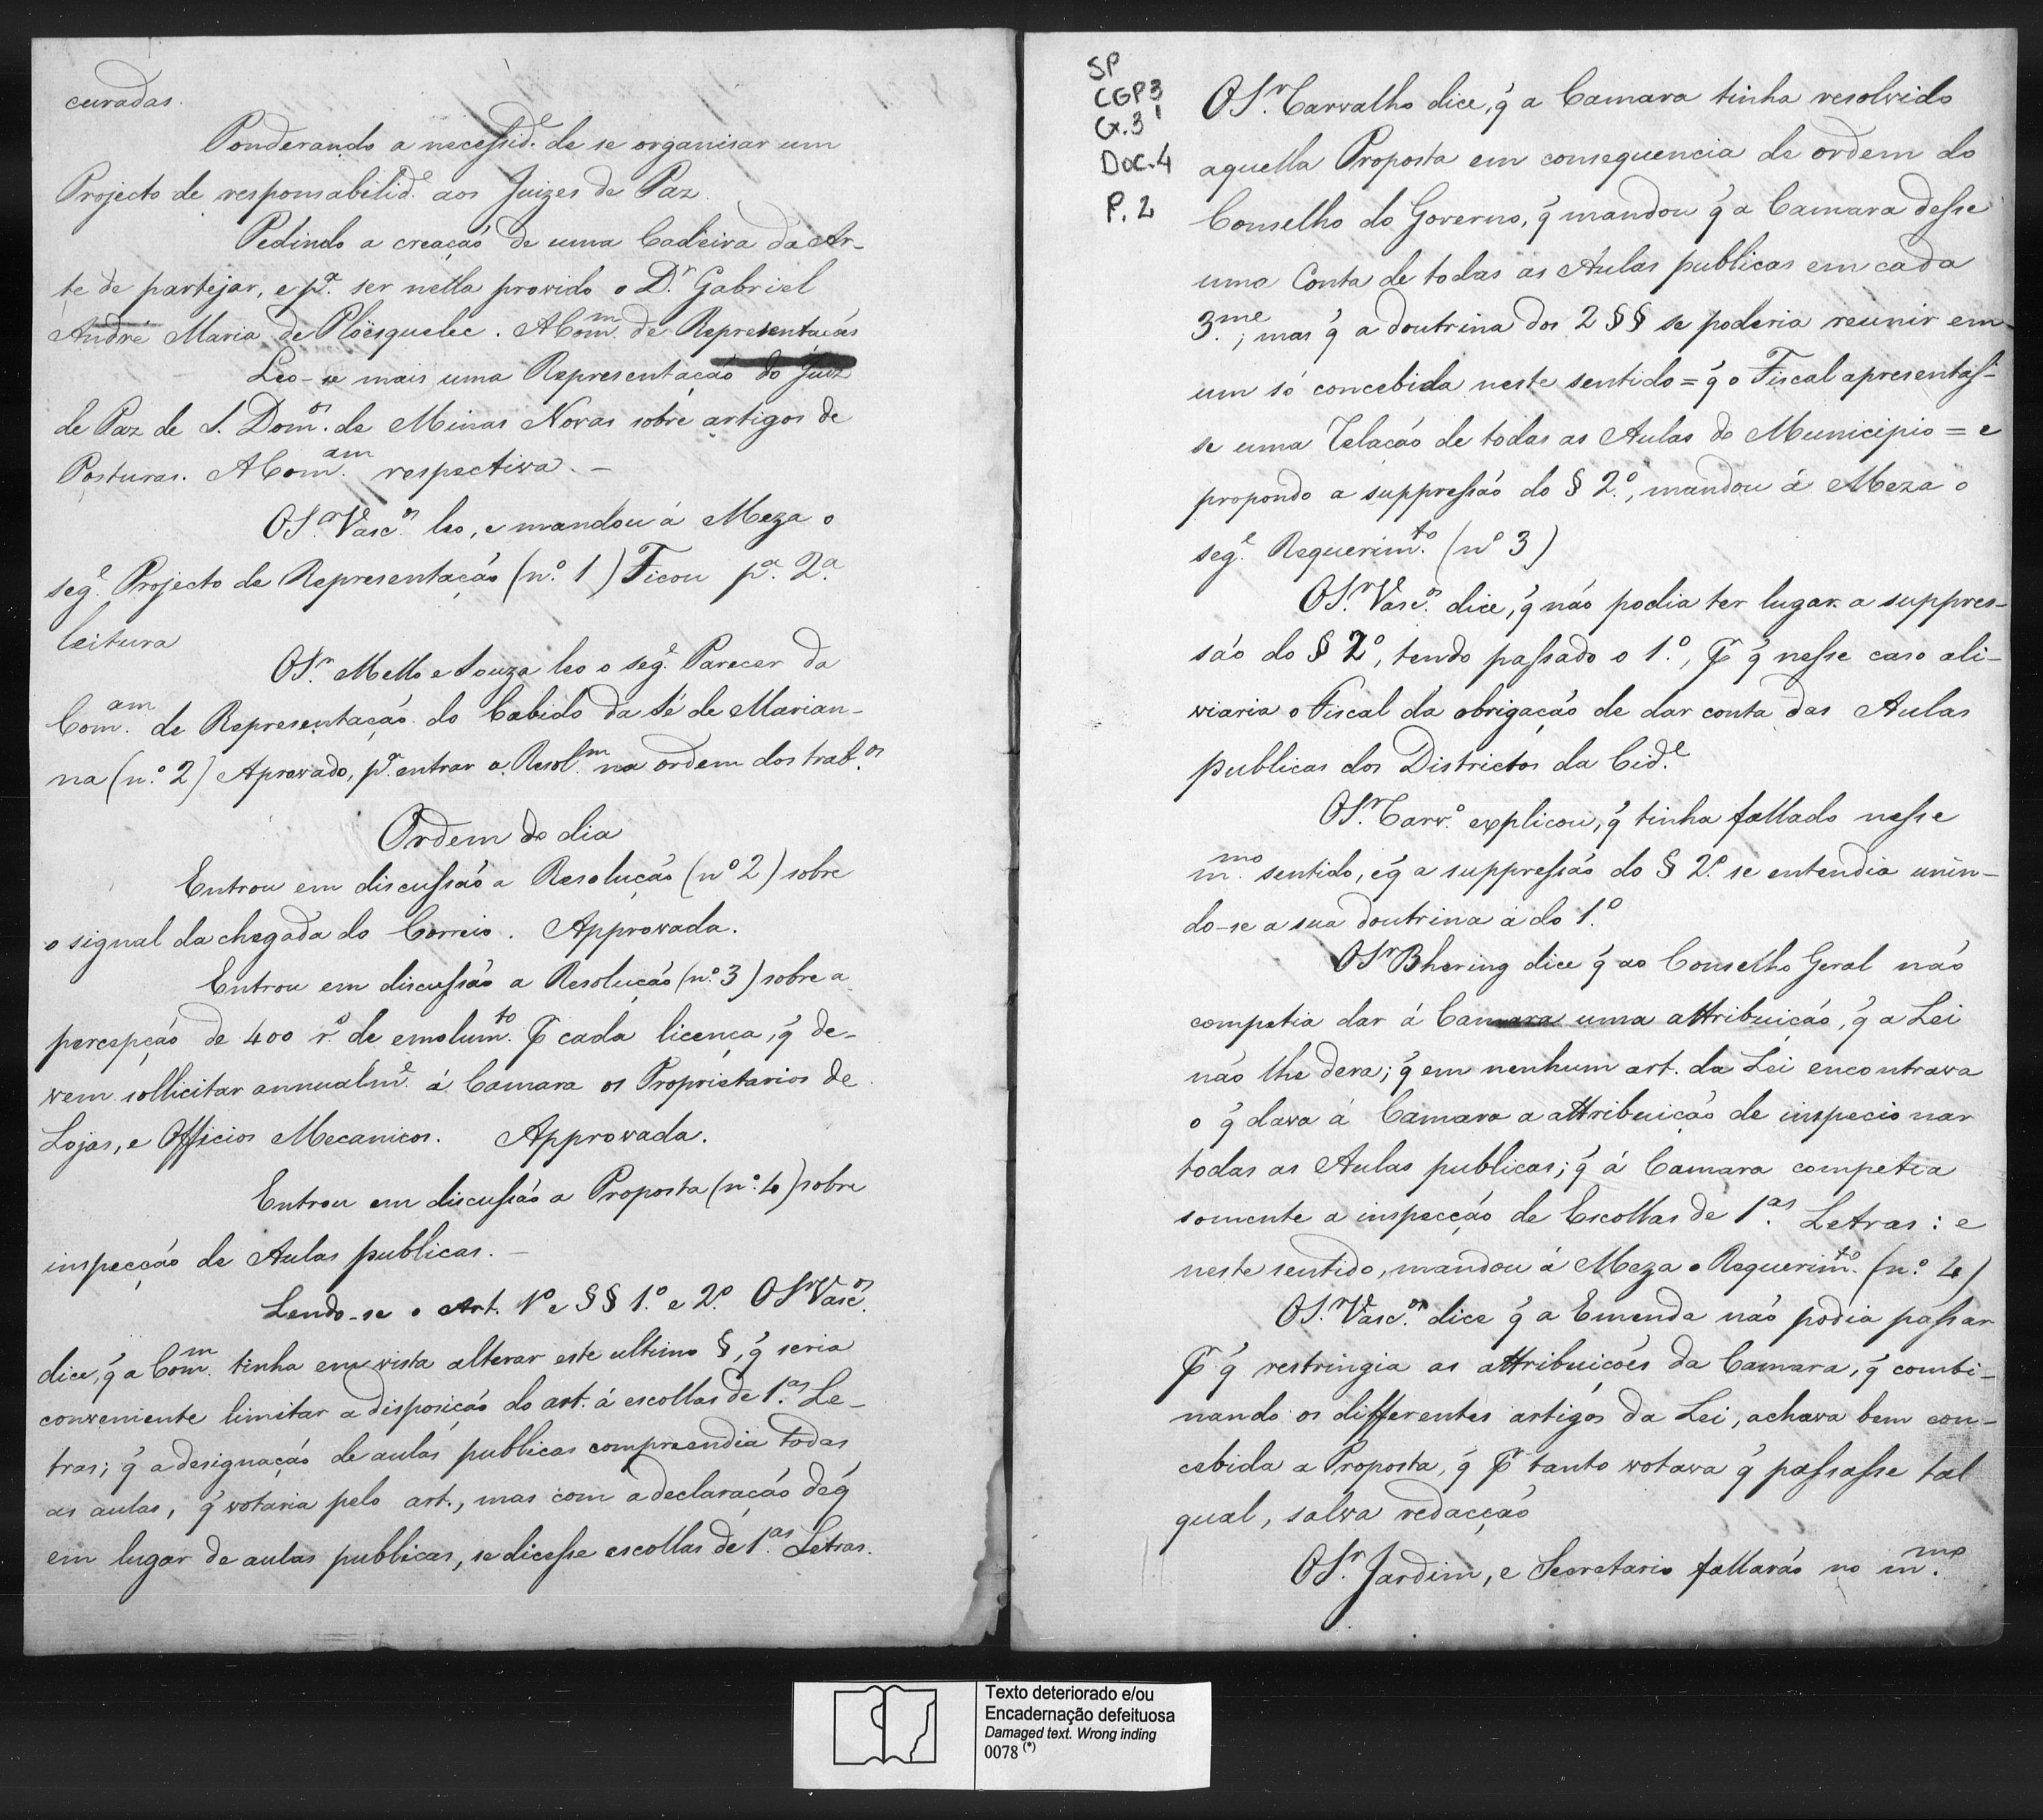 curadas.
Ponderando a necessid.e de se organisar um
Projecto de responsabilid.e aos Juizes de Paz.
Pedindo a creação de uma Cadeira da Ar-
te de partejar, e p.a ser nella provido o D.r Gabriel
André Maria de Plöesquelec. A Com.m de Representação
Leo-se mais uma Representação do Juiz
de Paz de S. Dom.os de Minas Novas sobre artigos de
Posturas. A Com.am respectiva. —
O S.r Vasc.os leo, e mandou á Meza o
seg.e Projecto de Representação (n.o 1) Ficou p.a 2.a
leitura
O S.r Mello e Souza leo o seg.e Parecer da
Com.am de Representação do Cabido da Sé de Marian-
na (n.o 2) Aprovado, p.a entrar a Resol.m na ordem dos trab.os
Ordem do dia
Entrou em discussão a Resolução (n.o 2) sobre
o signal da chegada do Correio. Approvada.
Entrou em discussão a Resolução (n.o 3) sobre a
percepção de 400 r.s de emolum.to p cada licença, q̃ de-
vem sollicitar annualm.e á Camara os Proprietarios de
Lojas, e Officios Mecanicos. Approvada.
Entrou em discussão a Proposta (n.o 4) sobre
inspecção de Aulas publicas. —
Lendo-se o Art. 1o e §§ 1.o e 2.o O S.r Vasc.os
dice, q̃ a Com.m tinha em vista alterar este ultimo §, q̃ seria
conveniente limitar a disposição do art. á escollas de 1.as Le-
tras; q̃ a designação de aulas publicas compreendia todas
as aulas, q̃ votaria pelo art., mas com a declaração de q̃
em lugar de aulas publicas, se dicesse escollas de 1.as Letras.
SP
CGP3
Cx.3
Doc.4
P.2
O S.r Carvalho dice, q̃ a Camara tinha resolvido
aquella Proposta em consequencia de ordem do
Conselho do Governo, q̃ mandou q̃ a Camara desse
uma Conta de todas as Aulas publicas em cada
3.me; mas q̃ a doutrina dos 2 §§ se poderia reunir em
um só concebida neste sentido = q̃ o Fiscal apresentas-
se uma Relação de todas as Aulas do Municipio = e
propondo a suppressão do § 2.o, mandou á Meza o
seg.e Requerim.to (no 3)
O S.r Vasc.os dice, q̃ não podia ter lugar a suppres-
são do § 2o, tendo passado o 1.o, p q̃ nesse caso ali-
viaria o Fiscal da obrigação de dar conta das Aulas
publicas dos Districtos da Cid.e
O S.r Carv.o explicou, q̃ tinha fallado nesse
m.mo sentido, e q̃ a suppressão do § 2.o se entendia unin-
do-se a sua doutrina á do 1.o
O S.r Bhering dice q̃ ao Conselho Geral não
competia dar á Camara uma attribuição, q̃ a Lei
não lhe dera; q̃ em nenhum art. da Lei encontrava
o q̃ dava á Camara a attribuição de inspecionar
todas as Aulas publicas; q̃ á Camara competia
somente a inspecção de Escollas de 1.as Letras: e
neste sentido, mandou á Meza o Requerim.to (n.o 4)
O S.r Vasc.os dice q̃ a Emenda não podia passar
p q̃ restringia as attribuições da Camara, q̃ combi-
nando os differentes artigos da Lei, achava bem con-
cebida a Proposta, q̃ p tanto votava q̃ passasse tal
qual, salva redacção
O S.r Jardim, e Secretario fallarão no m.mo
Texto deteriorado e/ou
Encadernação defeituosa
Damaged text. Wrong inding
0078 (*)